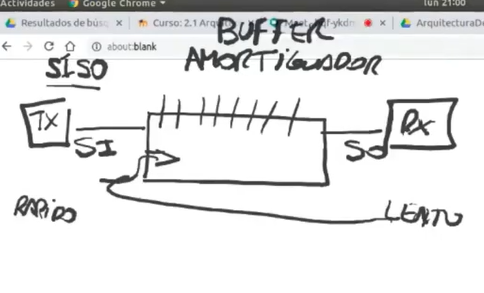 Actividades
Google Chrome
lun 21:00
Resultados de bús
Curso: 2.1 Arqu
ArquitecturaDe
about:blank
BUFFER
AMORTIGUADOR
SISO
TX
SI
SO
RX
RAPIDO
LENTO